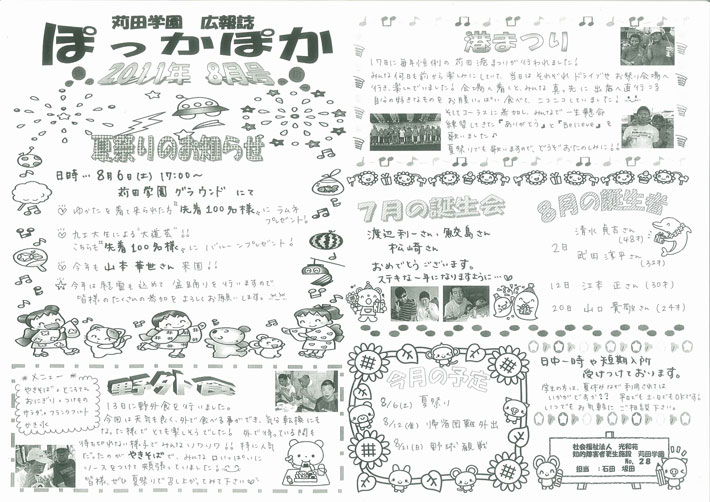 苅田学園 広報誌
ぽっかぽか
2011年 8月号
夏祭りのお知らせ
日時… 8月6日(土) 17:00～
苅田学園 グラウンド にて
ゆかたを着て来られた方"先着100名様"に ラムネ
プレゼント!
九工大生による"大道芸"!!
こちらも"先着100名様"に バルーンプレゼント!
今年も 山本 華世さん 来園!!
今年は感謝も込めて 盛上りを行いますので
皆様のたくさんの参加を よろしくお願いします。
野外食
※メニュー※
やきそば・ところてん
おにぎり・つけもの
サラダ・フランクフルト
かき氷
13日に野外食を行いました。
今回は天気も良く、外で食べる事ができ、気分転換にも
なった様で とても楽しそうでした。 外で待っている間も
待ちきれない様子で みんなソワソワ!! 特に人気
だったのが やきそばで、みんな 口いっぱいに
ソースをつけて 頬張っていました!
港まつり
17日に毎年恒例の 苅田港まつりが行われました!
みんな何日も前から楽しみにしていて、当日は それぞれ ドライブや お祭り会場へ
行き、楽しんでいました! 会場へ着くと、みんな 真っ先に 出店へ直行 つつ
自分の好きなものを お腹いっぱい 食べて、ニコニコしていました!
そしてコーラスに参加し、みんなで 一生懸命
練習してきた『ありがとう』と『Believe』を
歌いました♪
夏祭りでも歌いますので、どうぞおたのしみに!!
7月の誕生会
渡辺利一さん・鮫島さん
松崎さん
おめでとうございます。
ステキな一年になりますように…
8月の誕生者
2日
清水 真吉さん
(48才)
武田 淳平さん
(32才)
12日 江本 正さん (30才)
20日 山口 貴敬さん (24才)
今月の予定
8/6(土) 夏祭り
8/12(金) 帰省困難外出
8/21(日) 野球観戦
日中一時や短期入所
受けつけております。
学生の方は、夏休みなど利用されては
いかがですか?? 平日でも土・日でもOKです!
いつでもお気軽に ご相談下さい。
社会福祉法人 光和苑
知的障害者更生施設 苅田学園
No. 28
担当：石田 坂田